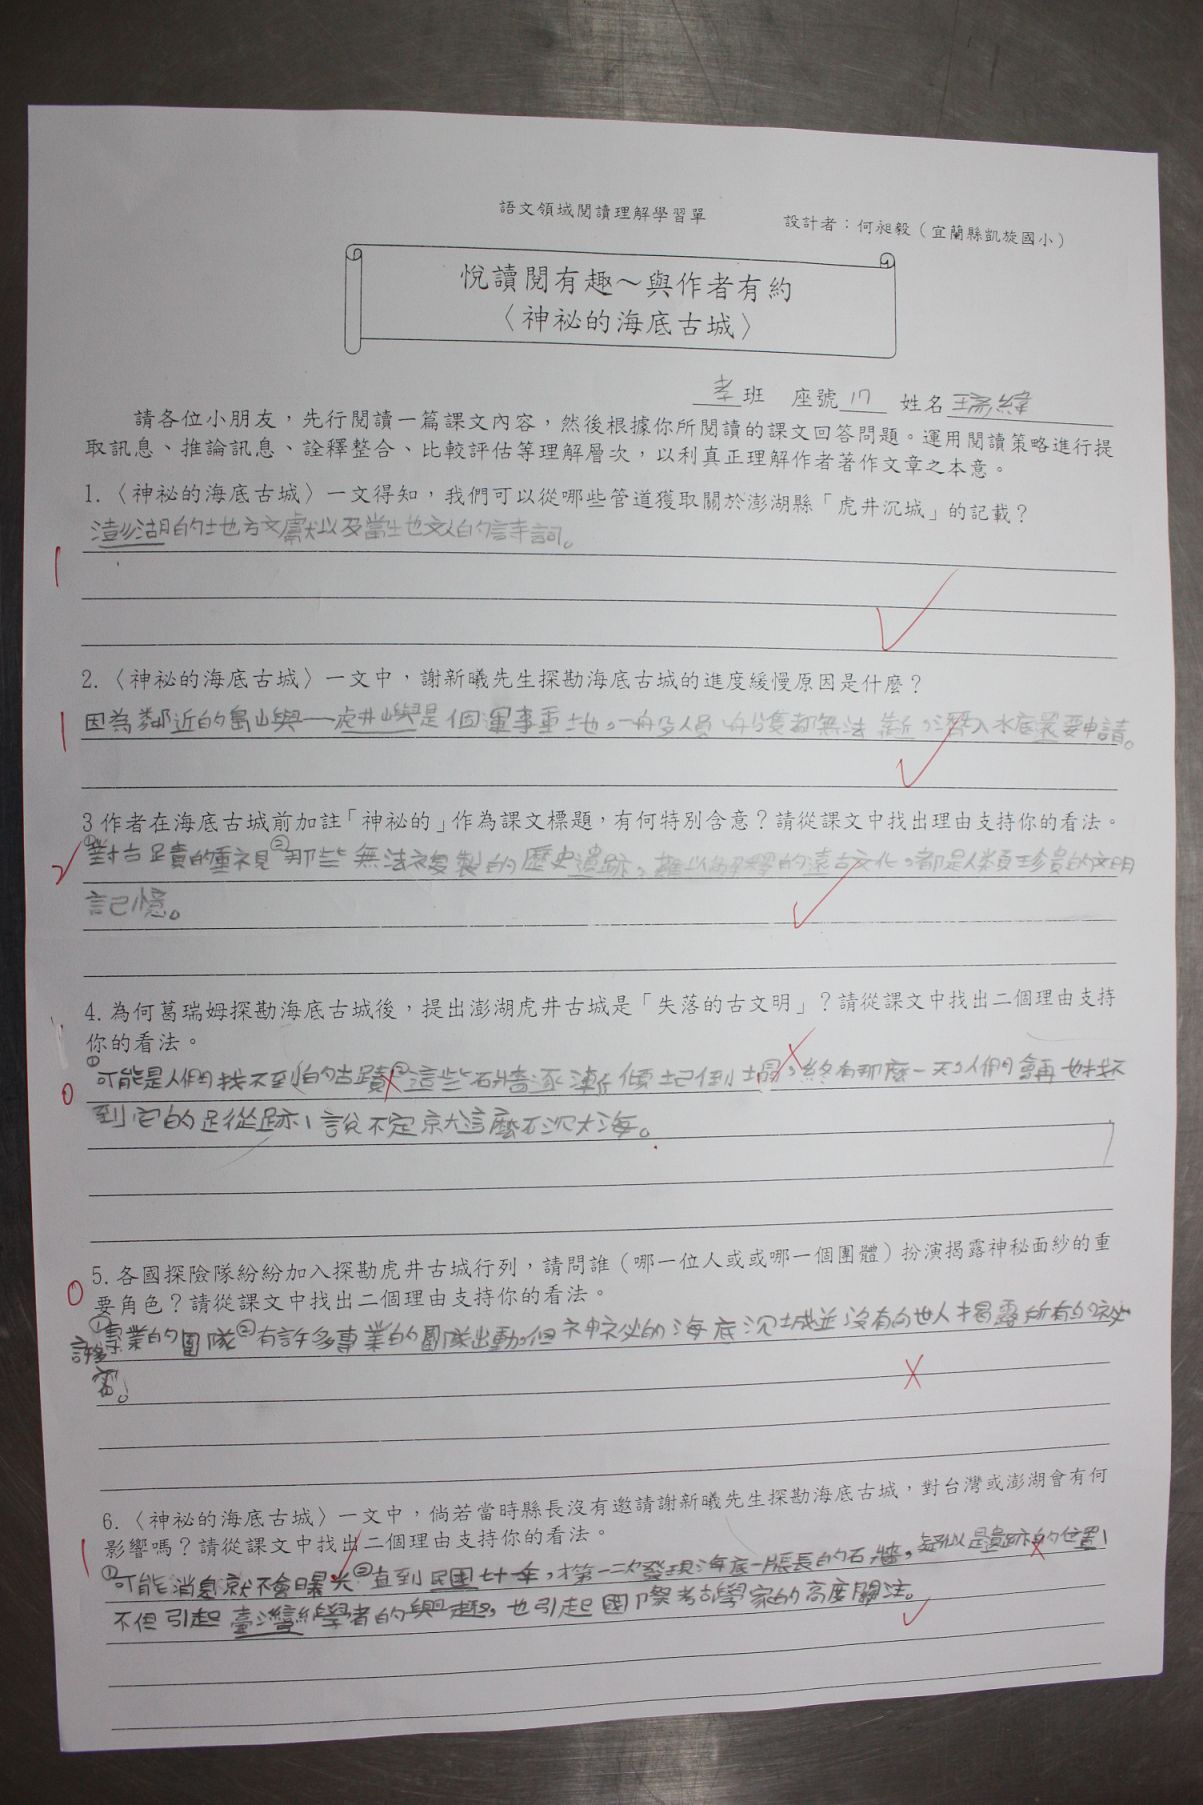 語文領域閱讀理解學習單
設計者：何昶毅（宜蘭縣凱旋國小）
悅讀閱有趣～與作者有約
〈神祕的海底古城〉
孝班 座號17 姓名瑞緯
請各位小朋友，先行閱讀一篇課文內容，然後根據你所閱讀的課文回答問題。運用閱讀策略進行提
取訊息、推論訊息、詮釋整合、比較評估等理解層次，以利真正理解作者著作文章之本意。
1.〈神祕的海底古城〉一文得知，我們可以從哪些管道獲取關於澎湖縣「虎井沉城」的記載？
澎湖的地方文獻以及當地文人的詩詞。
1
2.〈神祕的海底古城〉一文中，謝新曦先生探勘海底古城的進度緩慢原因是什麼？
因為鄰近的島嶼一虎井嶼是個軍事重地，一般人員、船隻都無法靠近，潛入水底還要申請。
1
3 作者在海底古城前加註「神祕的」作為課文標題，有何特別含意？請從課文中找出理由支持你的看法。
①對古蹟的重視②那些無法複製的歷史遺跡，難以解釋的遠古文化，都是人類珍貴的文明
記憶。
4.為何葛瑞姆探勘海底古城後，提出澎湖虎井古城是「失落的古文明」？請從課文中找出二個理由支持
你的看法。
①可能是人們找不到的古蹟②這些石牆逐漸傾圮倒塌，終有那麼一天，人們會再也找不
0
到它的足從跡，說不定就這麼石沉大海。
5.各國探險隊紛紛加入探勘虎井古城行列，請問誰（哪一位人或或哪一個團體）扮演揭露神秘面紗的重
0
要角色？請從課文中找出二個理由支持你的看法。
①許多專業的團隊②有許多專業的團隊出動，但神祕的海底沉城並沒有向世人揭露所有的祕
密。
6.〈神祕的海底古城〉一文中，倘若當時縣長沒有邀請謝新曦先生探勘海底古城，對台灣或澎湖會有何
影響嗎？請從課文中找出二個理由支持你的看法。
1
①可能消息就不會曝光②直到民國七十年，才第一次發現海底一張長的石牆，疑似是遺跡的位置，
不但引起臺灣學者的興趣，也引起國際考古學家的高度關注。